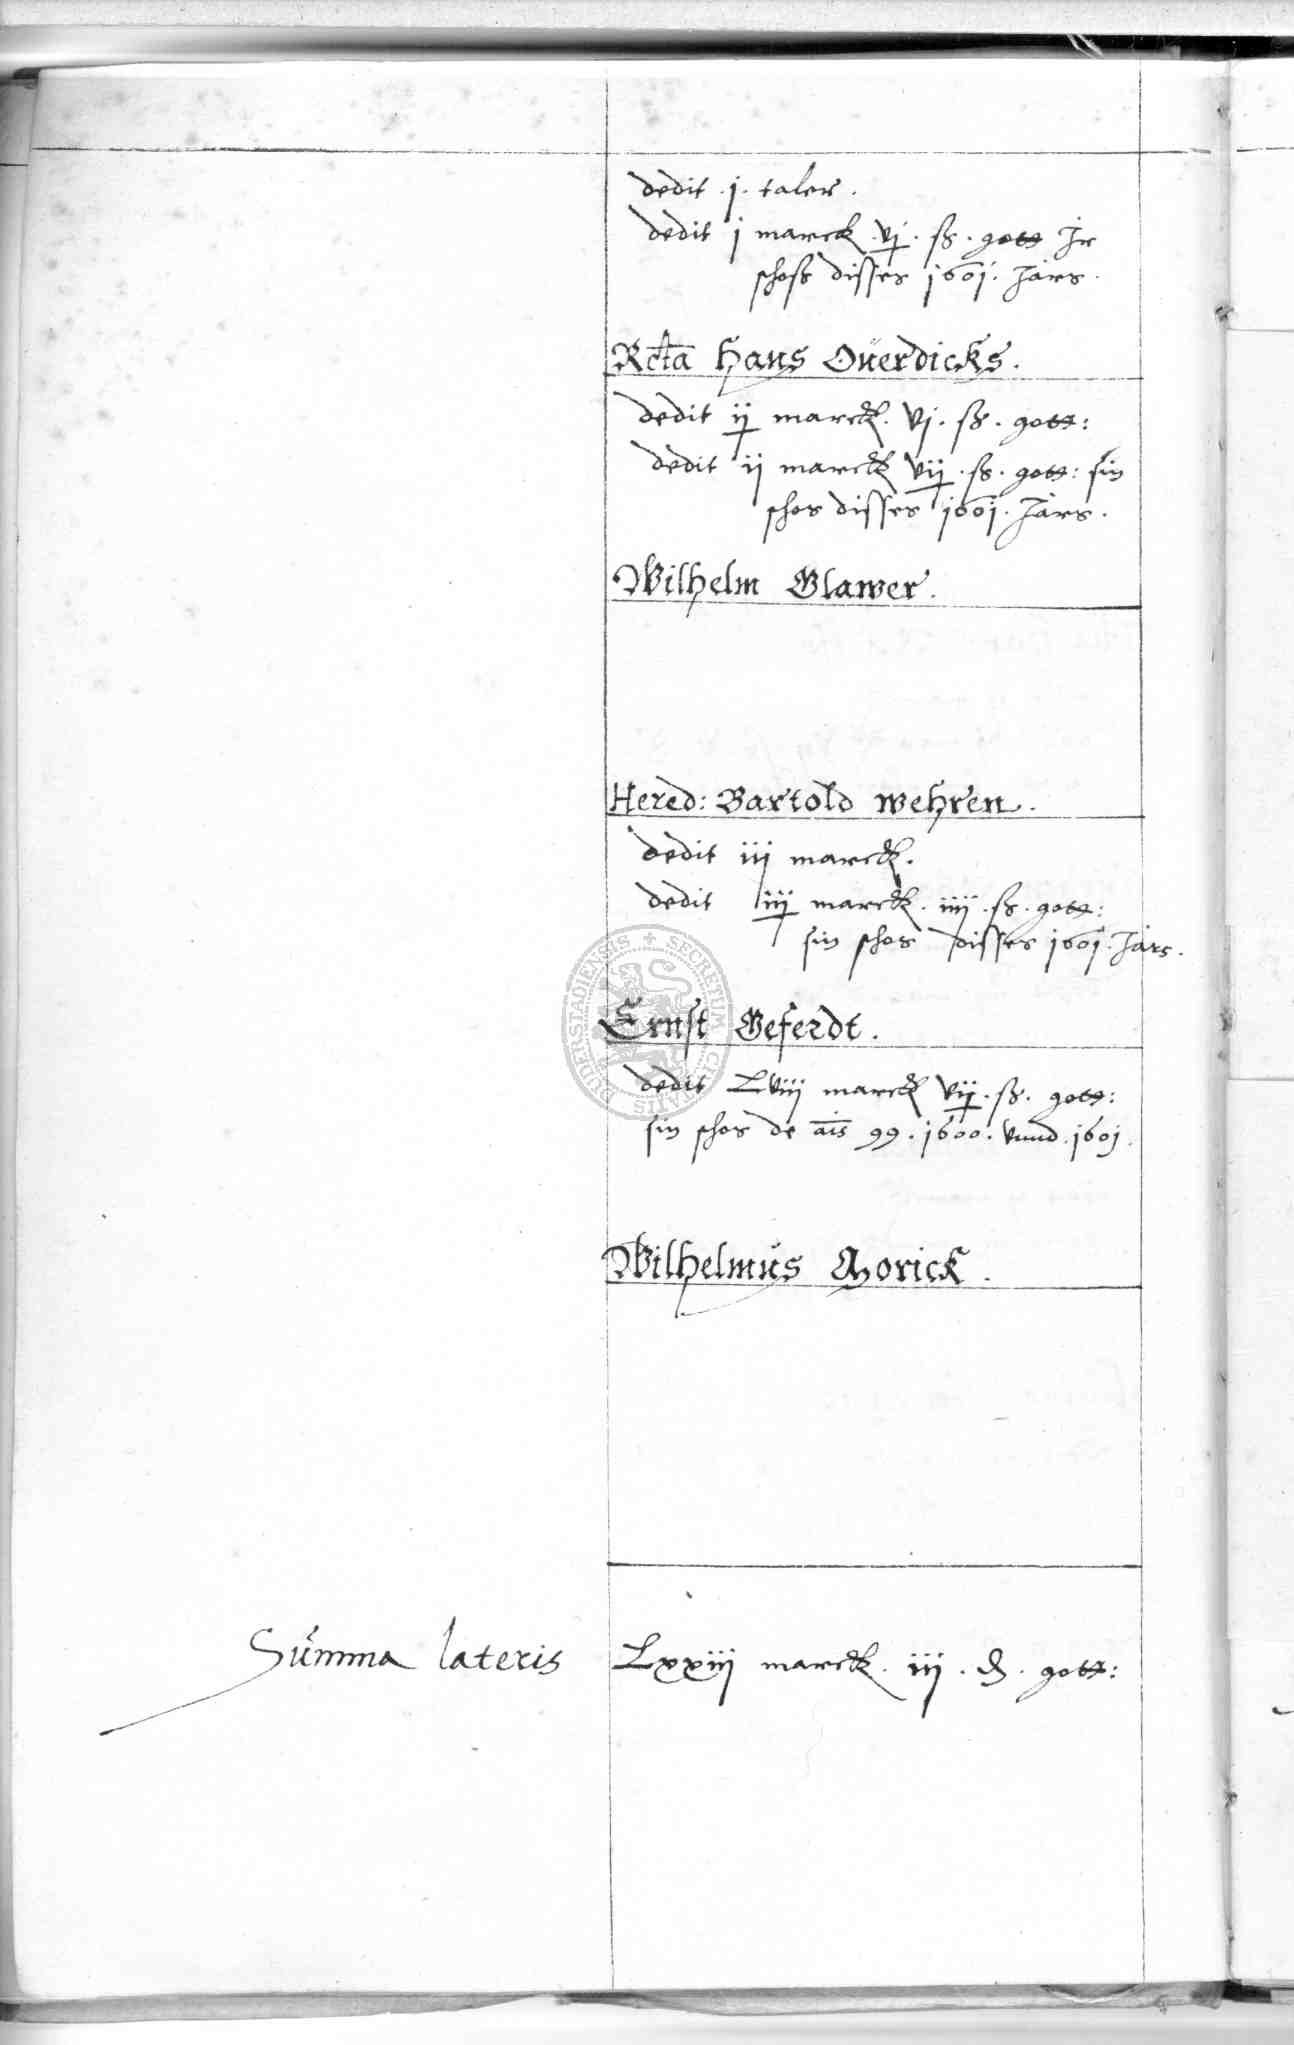 dedit . j . taler .
dedit j marck . vj . ß . gott Jr
schoß disses 1601 . Jars .
Rcta Hans Oüerdicks .
dedit ij marck . vj . ß . gott :
dedit ij marck vij . ß . gott : sin
schos disses 1601 . Jars .
Wilhelm Glawer .
Hered : Bartold wehren .
dedit iij marck .
dedit iij marck . iiij . ß . gott :
sin schos disses 1601 . Jars .
SECRETUM CIVITATIS DUDERSTADIENSIS
Ernst Geferdt .
dedit Lviij marck vij . ß . gott :
sin schos de ais 99 . 1600 . vnnd . 1601 .
Wilhelmus Morick .
Summa lateris Lxxiij marck . iij . ₰ . gott :